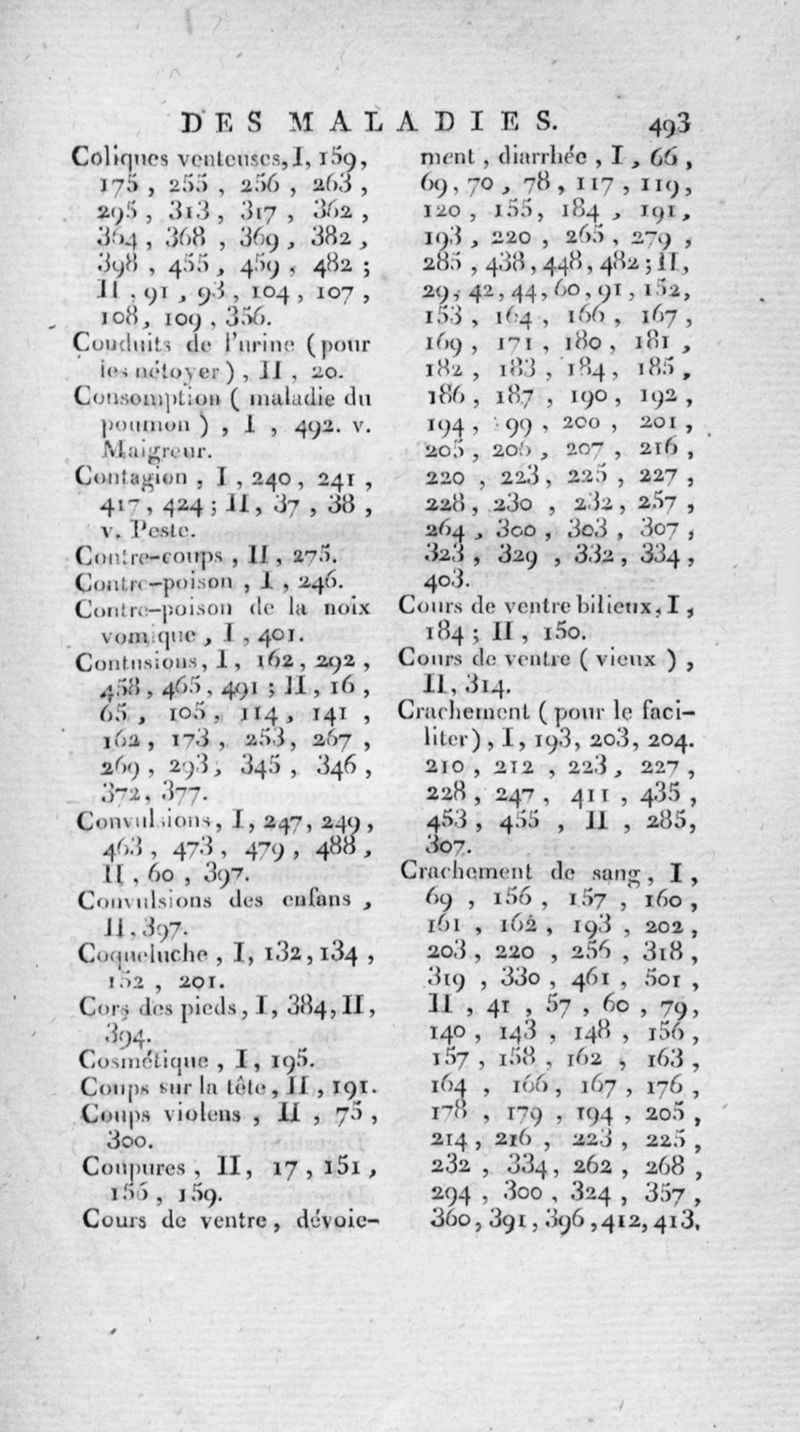 DES MALADIES. 493
Coliques venteuses, I, 159,
175, 255, 256, 263,
295, 313, 317, 362,
364, 368, 369, 382,
398, 455, 459, 482;
II, 91, 93, 104, 107,
108, 109, 356.
Conduits de l'urine (pour
les nétoyer), II, 20.
Consomption (maladie du
poumon), I, 492. v.
Maigreur.
Contagion, I, 240, 241,
417, 424; II, 37, 38,
v. Peste.
Contre-coups, II, 275.
Contre-poison, I, 246.
Contre-poison de la noix
vomique, I, 401.
Contusions, I, 162, 292,
458, 465, 491; II, 16,
65, 105, 114, 141,
162, 173, 253, 267,
269, 293, 345, 346,
372, 377.
Convulsions, I, 247, 249,
463, 473, 479, 488,
II, 60, 397.
Convulsions des enfans,
II, 397.
Coqueluche, I, 132, 134,
152, 201.
Cors des pieds, I, 384, II,
394.
Cosmétique, I, 195.
Coups sur la tête, II, 191.
Coups violens, II, 75,
300.
Coupures, II, 17, 151,
155, 159.
Cours de ventre, dévoie-
ment, diarrhée, I, 66,
69, 70, 78, 117, 119,
120, 155, 184, 191,
193, 220, 265, 279,
285, 438, 448, 482; II,
29, 42, 44, 60, 91, 152,
153, 164, 166, 167,
169, 171, 180, 181,
182, 183, 184, 185,
186, 187, 190, 192,
194, 99, 200, 201,
205, 206, 207, 216,
220, 223, 225, 227,
228, 230, 232, 257,
264, 300, 303, 307,
323, 329, 332, 334,
403.
Cours de ventre bilieux, I,
184; II, 150.
Cours de ventre (vieux),
II, 314.
Crachement (pour le faci-
liter), I, 193, 203, 204.
210, 212, 223, 227,
228, 247, 411, 435,
453, 455, II, 285,
307.
Crachement de sang, I,
69, 156, 157, 160,
161, 162, 193, 202,
203, 220, 256, 318,
319, 330, 461, 501,
II, 41, 57, 60, 79,
140, 143, 148, 156,
157, 158, 162, 163,
164, 166, 167, 176,
178, 179, 194, 205,
214, 216, 223, 225,
232, 334, 262, 268,
294, 300, 324, 357,
360, 391, 396, 412, 413,